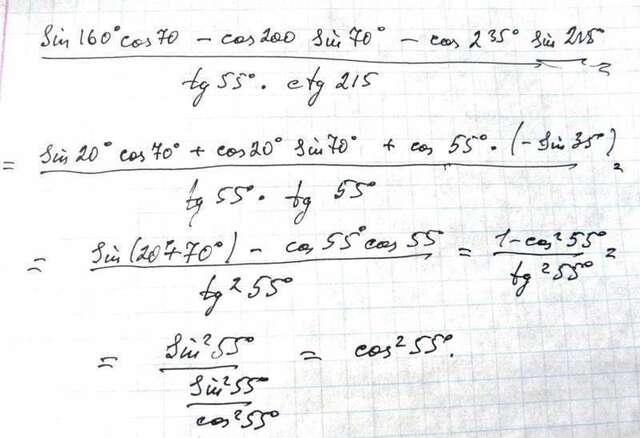 sin 160° cos 70 - cos 200 sin 70° - cos 235° sin 215°
tg 55° · ctg 215
= sin 20° cos 70° + cos 20° sin 70° + cos 55° · (-sin 35°) =
tg 55° · tg 55°
= sin(20°+70°) - cos 55° cos 55 = 1-cos²55° =
tg²55° tg²55°
= sin²55° = cos²55°.
sin²55°
cos²55°